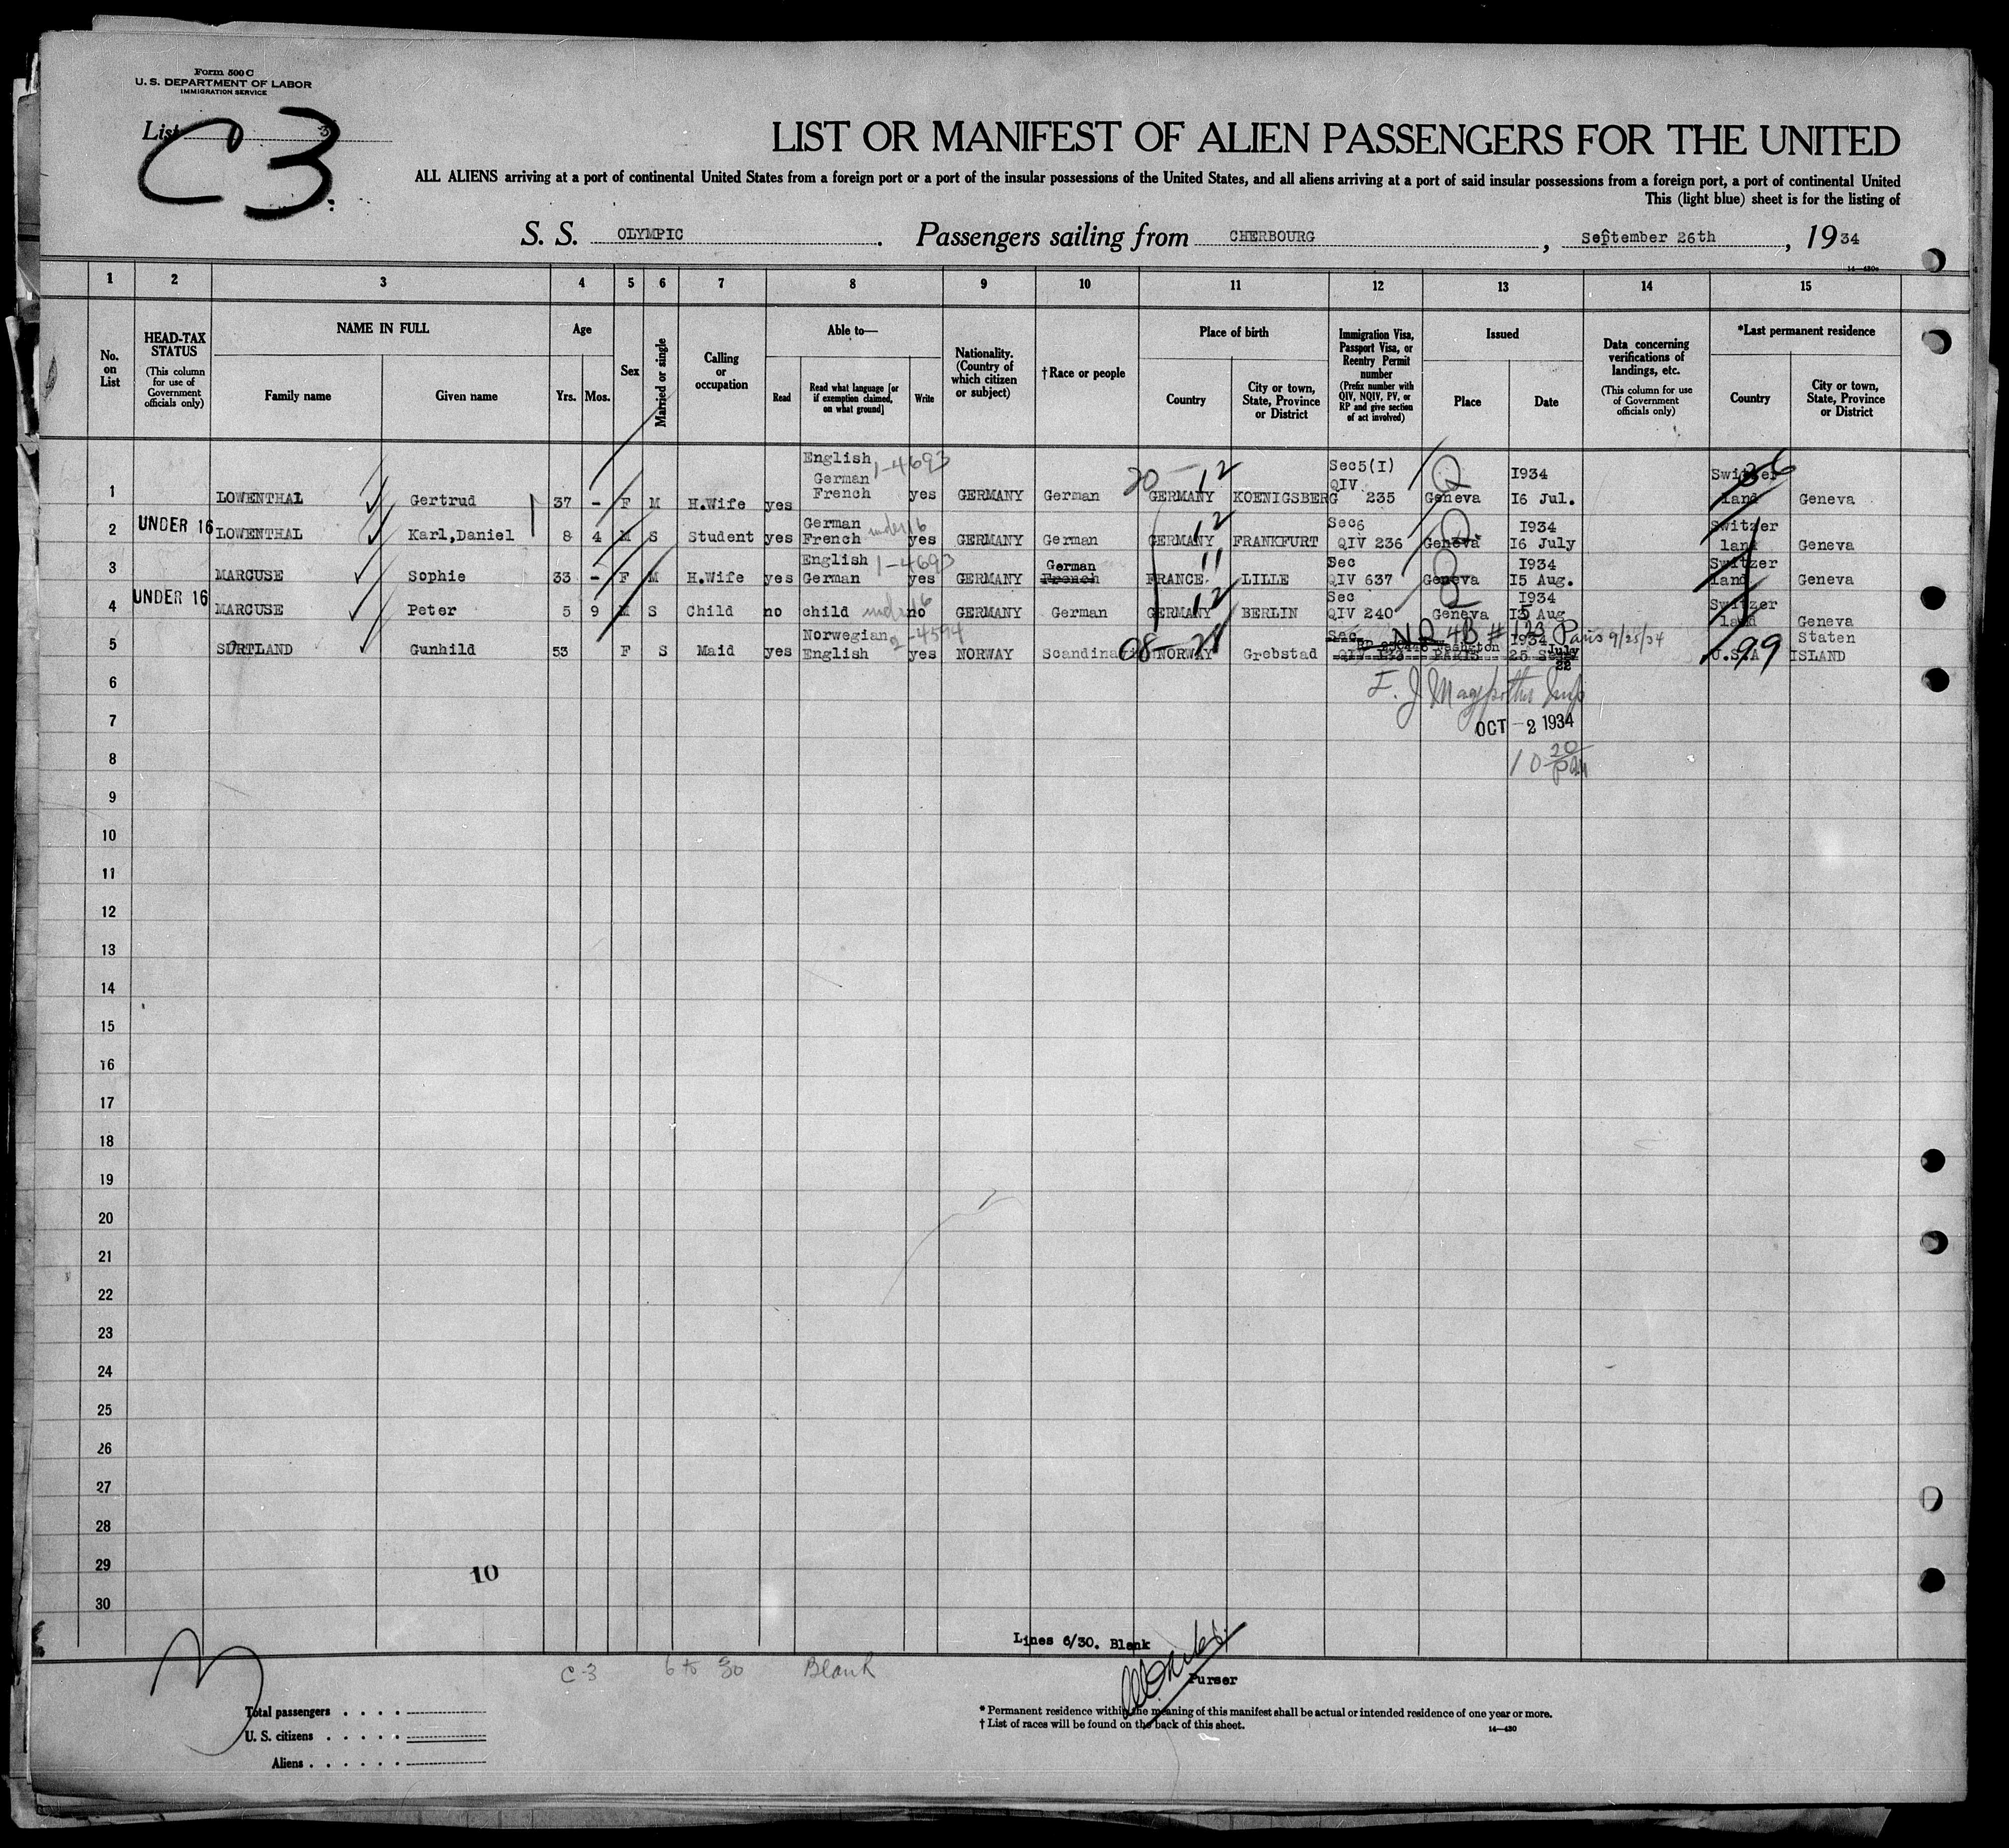 Form 500 C
U. S. DEPARTMENT OF LABOR
IMMIGRATION SERVICE
List 3
C 3
LIST OR MANIFEST OF ALIEN PASSENGERS FOR THE UNITED
ALL ALIENS arriving at a port of continental United States from a foreign port or a port of the insular possessions of the United States, and all aliens arriving at a port of said insular possessions from a foreign port, a port of continental United
This (light blue) sheet is for the listing of
S. S. OLYMPIC. Passengers sailing from CHERBOURG, September 26th, 1934
1 2 3 4 5 6 7 8 9 10 11 12 13 14 15
No. on List
HEAD-TAX STATUS (This column for use of Government officials only)
NAME IN FULL Family name Given name
Age Yrs. Mos.
Sex
Married or single
Calling or occupation
Able to— Read Read what language [or if exemption claimed, on what ground] Write
Nationality. (Country of which citizen or subject)
†Race or people
Place of birth Country City or town, State, Province or District
Immigration Visa, Passport Visa, or Reentry Permit number (Prefix number with QIV, NQIV, PV, or RP and give section of act involved)
Issued Place Date
Data concerning verifications of landings, etc. (This column for use of Government officials only)
*Last permanent residence Country City or town, State, Province or District
1 LOWENTHAL Gertrud 37 - F M H.Wife yes English German French 1-4693 yes GERMANY German 20-12 GERMANY KOENIGSBERG Sec5(I) QIV 235 Q Geneva I934 I6 Jul. Switzerland Geneva
2 UNDER 16 LOWENTHAL Karl,Daniel 8 4 M S Student yes German French under 16 yes GERMANY German 12 GERMANY FRANKFURT Sec6 QIV 236 Q Geneva I934 I6 July Switzerland Geneva
3 MARCUSE Sophie 33 - F M H.Wife yes English German 1-4693 yes GERMANY German French 11 FRANCE LILLE Sec QIV 637 Geneva I934 I5 Aug. Switzerland Geneva
4 UNDER 16 MARCUSE Peter 5 9 M S Child no child under 16 no GERMANY German 12 GERMANY BERLIN Sec QIV 240 Geneva I934 I5 Aug Switzerland Geneva
5 SURTLAND Gunhild 53 F S Maid yes Norwegian English 2-4594 yes NORWAY Scandina 08-21 NORWAY Grebstad Sec QIV 133 4B # 123 Paris 9/25/34 Washington PARIS 1934 July 22 25 Sep U.S.A 99 Staten ISLAND
6
OCT - 2 1934
7
8
10 20
9
10
11
12
13
14
15
16
17
18
19
20
21
22
23
24
25
26
27
28
29
10
30
Lines 6/30. Blank
C-3 6 to 30 Blank
Purser
Total passengers
U. S. citizens
Aliens
* Permanent residence within the meaning of this manifest shall be actual or intended residence of one year or more.
† List of races will be found on the back of this sheet.
14—430